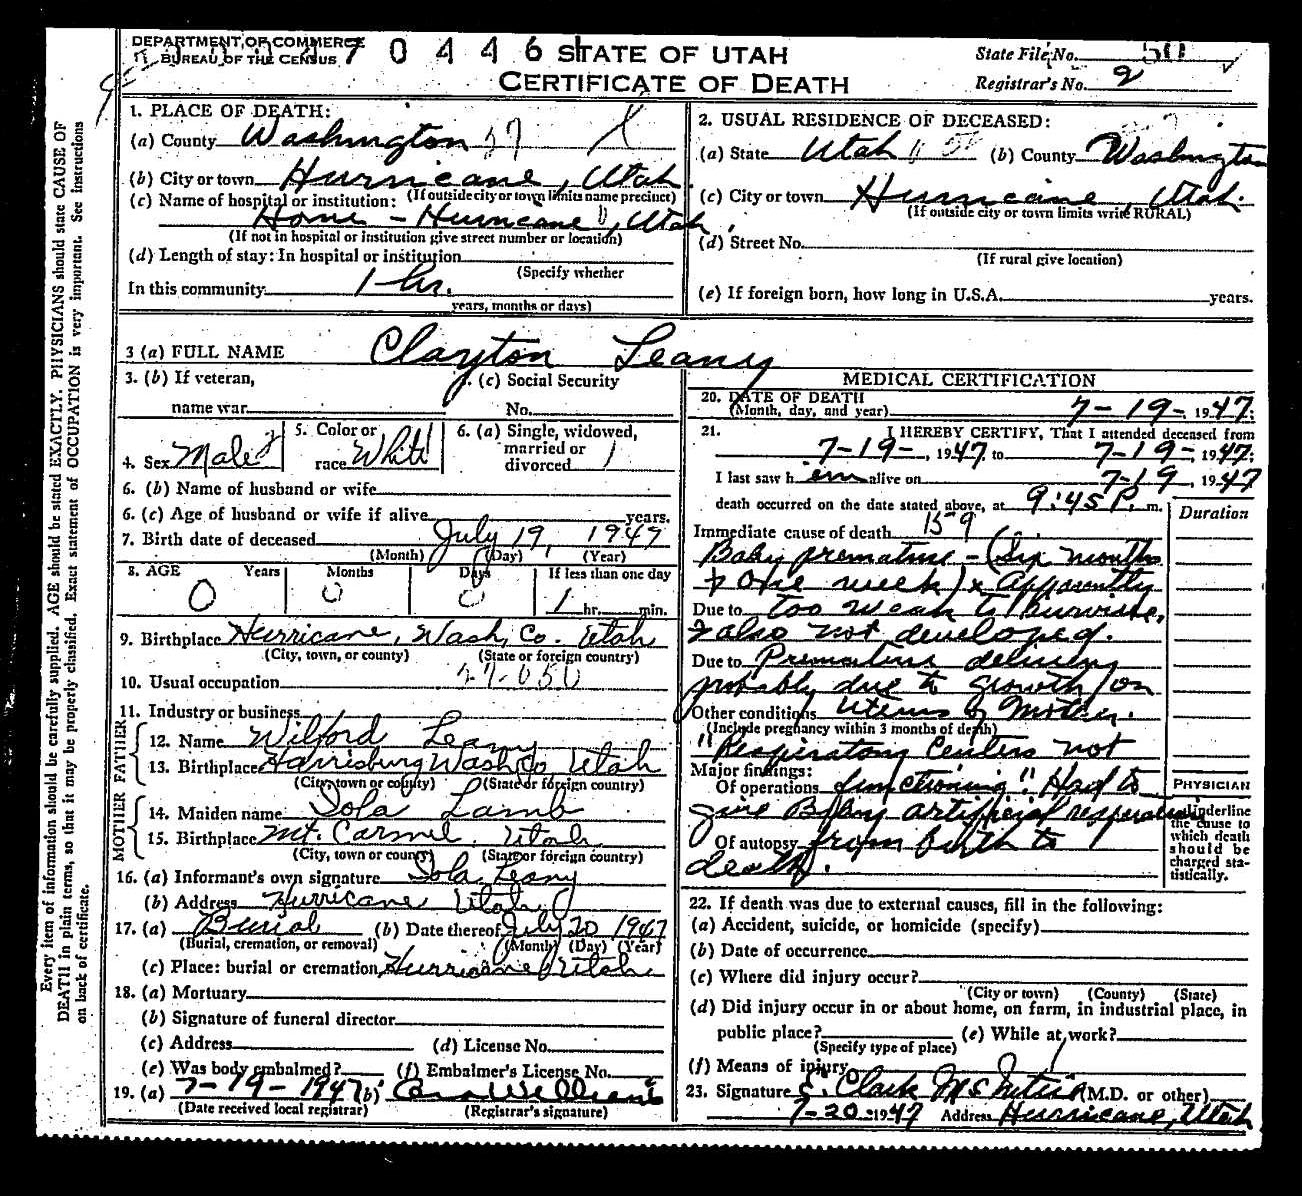 DEPARTMENT OF COMMERCE
BUREAU OF THE CENSUS
7 0 4 4 6
STATE OF UTAH
CERTIFICATE OF DEATH
State File No. 50
Registrar's No. 2
1. PLACE OF DEATH:
(a) County Washington 27
(b) City or town Hurricane, Utah
(If outside city or town limits name precinct)
(c) Name of hospital or institution:
Home - Hurricane, Utah.
(If not in hospital or institution give street number or location)
(d) Length of stay: In hospital or institution
(Specify whether
In this community 1 hr.
years, months or days)
2. USUAL RESIDENCE OF DECEASED:
(a) State Utah (b) County Washington
(c) City or town Hurricane, Utah.
(If outside city or town limits write RURAL)
(d) Street No.
(If rural give location)
(e) If foreign born, how long in U.S.A. years.
3 (a) FULL NAME Clayton Leany
3. (b) If veteran,
name war
(c) Social Security
No.
4. Sex Male
5. Color or
race White
6. (a) Single, widowed,
married or
divorced 1
6. (b) Name of husband or wife
6. (c) Age of husband or wife if alive years.
7. Birth date of deceased July 19, 1947
(Month) (Day) (Year)
8. AGE Years Months Days If less than one day
0 0 0 1 hr. min.
9. Birthplace Hurricane, Wash. Co. Utah
(City, town, or county) (State or foreign country)
10. Usual occupation 27-050
11. Industry or business
FATHER
12. Name Wilford Leany
13. Birthplace Harrisburg Wash Co Utah
(City, town or county) (State or foreign country)
MOTHER
14. Maiden name Iola Lamb
15. Birthplace Mt. Carmel, Utah
(City, town or county) (State or foreign country)
16. (a) Informant's own signature Iola Leany
(b) Address Hurricane Utah
17. (a) Burial (b) Date thereof July 20 1947
(Burial, cremation, or removal) (Month) (Day) (Year)
(c) Place: burial or cremation Hurricane, Utah
18. (a) Mortuary
(b) Signature of funeral director
(c) Address (d) License No.
(e) Was body embalmed? (f) Embalmer's License No.
19. (a) 7-19-1947 (b)
(Date received local registrar) (Registrar's signature)
MEDICAL CERTIFICATION
20. DATE OF DEATH
(Month, day, and year) 7-19-1947;
21. I HEREBY CERTIFY, That I attended deceased from
7-19-, 1947, to 7-19-, 1947;
I last saw him alive on 7-19, 1947
death occurred on the date stated above, at 9:45 P. m.
Duration
159
Immediate cause of death
Baby premature - (Six months
+ one week) x Apparently
Due to too weak to survive,
& also not developed.
Due to Premature delivery
probably due to growth on
Other conditions Uterus of Mother.
(Include pregnancy within 3 months of death)
"Respiratory Centers not
Major findings:
Of operations functioning." Had to
give Baby artificial respiration
Of autopsy from birth to
death.
PHYSICIAN
Underline
the cause to
which death
should be
charged sta-
tistically.
22. If death was due to external causes, fill in the following:
(a) Accident, suicide, or homicide (specify)
(b) Date of occurrence
(c) Where did injury occur?
(City or town) (County) (State)
(d) Did injury occur in or about home, on farm, in industrial place, in
public place? (e) While at work?
(Specify type of place)
(f) Means of injury
23. Signature E. Clark McIntire (M.D. or other)
7-20-1947 Address Hurricane, Utah
Every item of information should be carefully supplied. AGE should be stated EXACTLY. PHYSICIANS should state CAUSE OF
DEATH in plain terms, so that it may be properly classified. Exact statement of OCCUPATION is very important. See instructions
on back of certificate.